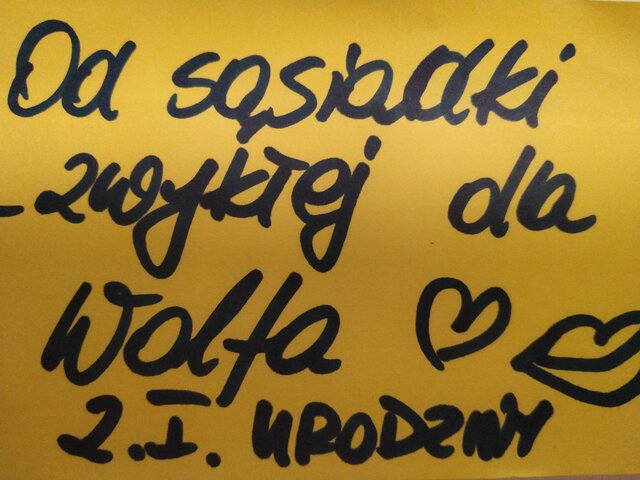 Od sąsiadki
- zwykłej dla
Wolfa
2.I. URODZINY